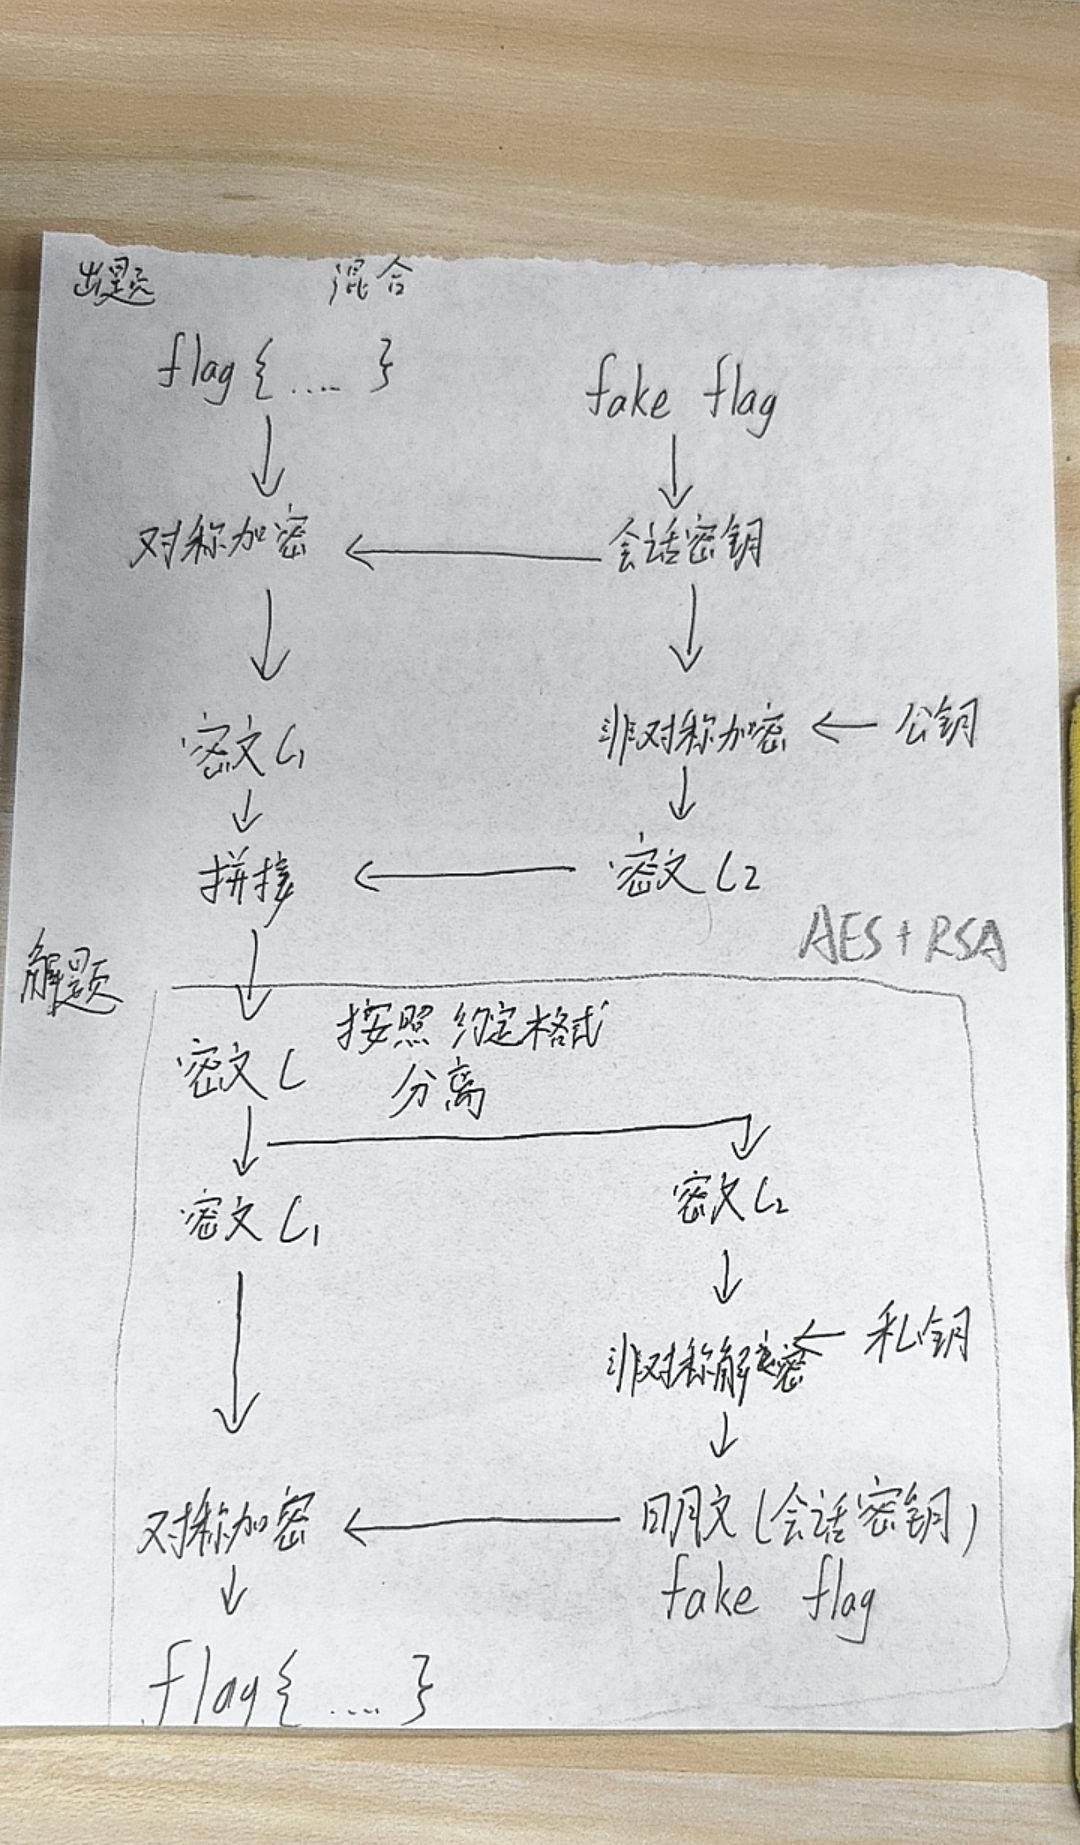 出题 混合
flag{....} fake flag
对称加密 会话密钥
密文C1 非对称加密 公钥
拼接 密文C2
AES+RSA
解题
密文C 按照约定格式
分离
密文C1 密文C2
非对称解密 私钥
对称加密 明文(会话密钥)
fake flag
flag{....}